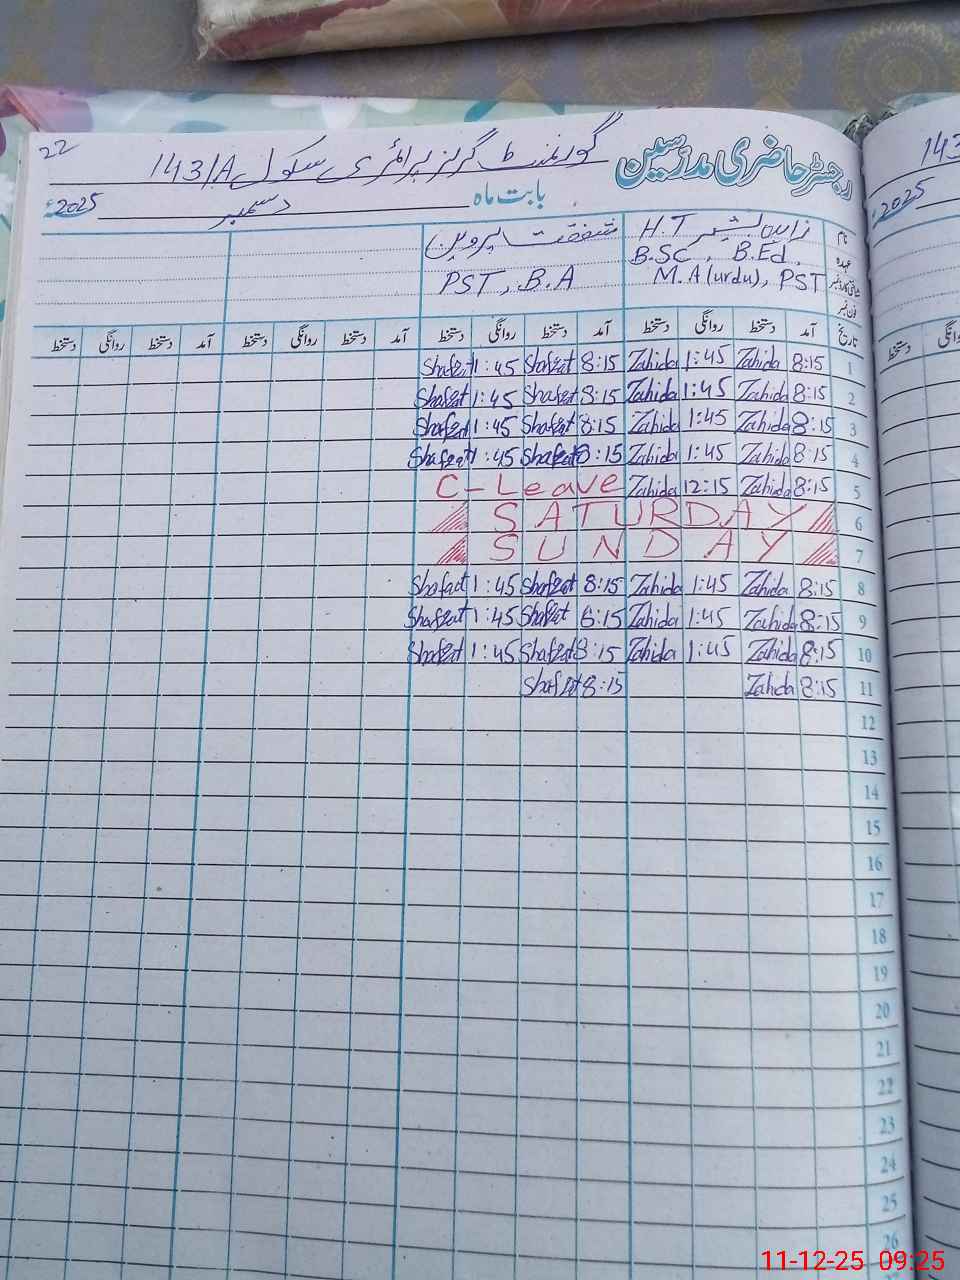 22
رجسٹر حاضری مدرسین گورنمنٹ گرلز پرائمری سکول 143/A
بابت ماہ دسمبر 2025ء
نام زاہدہ بشیر H.T شفقت پروین
عہدہ B.Sc, B.Ed,
M.A(urdu), PST PST, B.A
فون نمبر
تاریخ آمد دستخط روانگی دستخط آمد دستخط روانگی دستخط آمد دستخط روانگی دستخط آمد دستخط روانگی دستخط
1 8:15 Zahida 1:45 Zahida 8:15 Shafqat 1:45 Shafqat
2 8:15 Zahida 1:45 Zahida 8:15 Shafqat 1:45 Shafqat
3 8:15 Zahida 1:45 Zahida 8:15 Shafqat 1:45 Shafqat
4 8:15 Zahida 1:45 Zahida 8:15 Shafqat 1:45 Shafqat
5 8:15 Zahida 12:15 Zahida C-Leave
6 SATURDAY
7 SUNDAY
8 8:15 Zahida 1:45 Zahida 8:15 Shafqat 1:45 Shafqat
9 8:15 Zahida 1:45 Zahida 8:15 Shafqat 1:45 Shafqat
10 8:15 Zahida 1:45 Zahida 8:15 Shafqat 1:45 Shafqat
11 8:15 Zahida 8:15 Shafqat
12
13
14
15
16
17
18
19
20
21
22
23
24
25
26
143
2025ء
دستخط
11-12-25 09:25